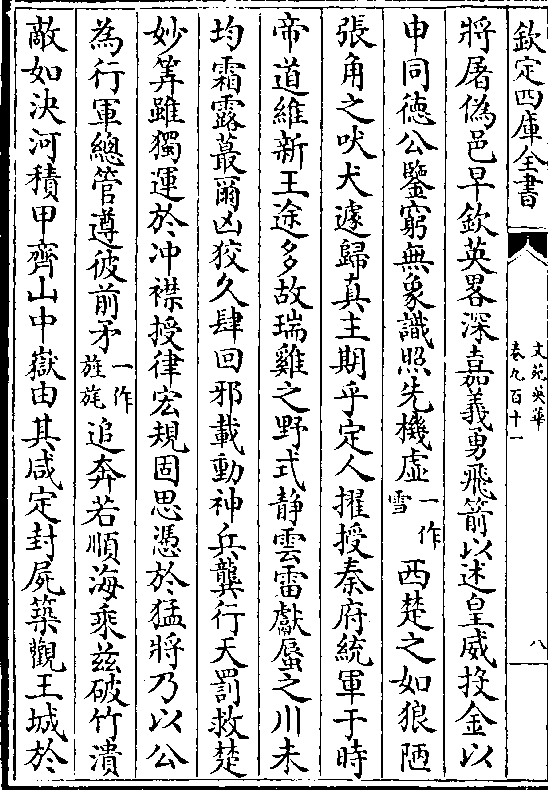 欽定四庫全書
文苑英華
卷九百十一
八
將屠偽邑早欽英畧深嘉義勇飛箭以述皇威投金以
申同徳公鑒窮無象識照先機虚一作雪西楚之如狼陋
張角之吠犬遽歸真主期乎定人擢授秦府統軍于時
帝道維新王途多故瑞雞之野式静雲雷獻蜃之川未
均霜露蕞爾凶狡久肆回邪載動神兵龔行天罰救楚
妙筭雖獨運於冲襟授律宏規固思憑於猛將乃以公
為行軍總管遵彼前矛一作旌旄追奔若順海乘兹破竹潰
敵如決河積甲齊山中嶽由其咸定封屍築觀王城於